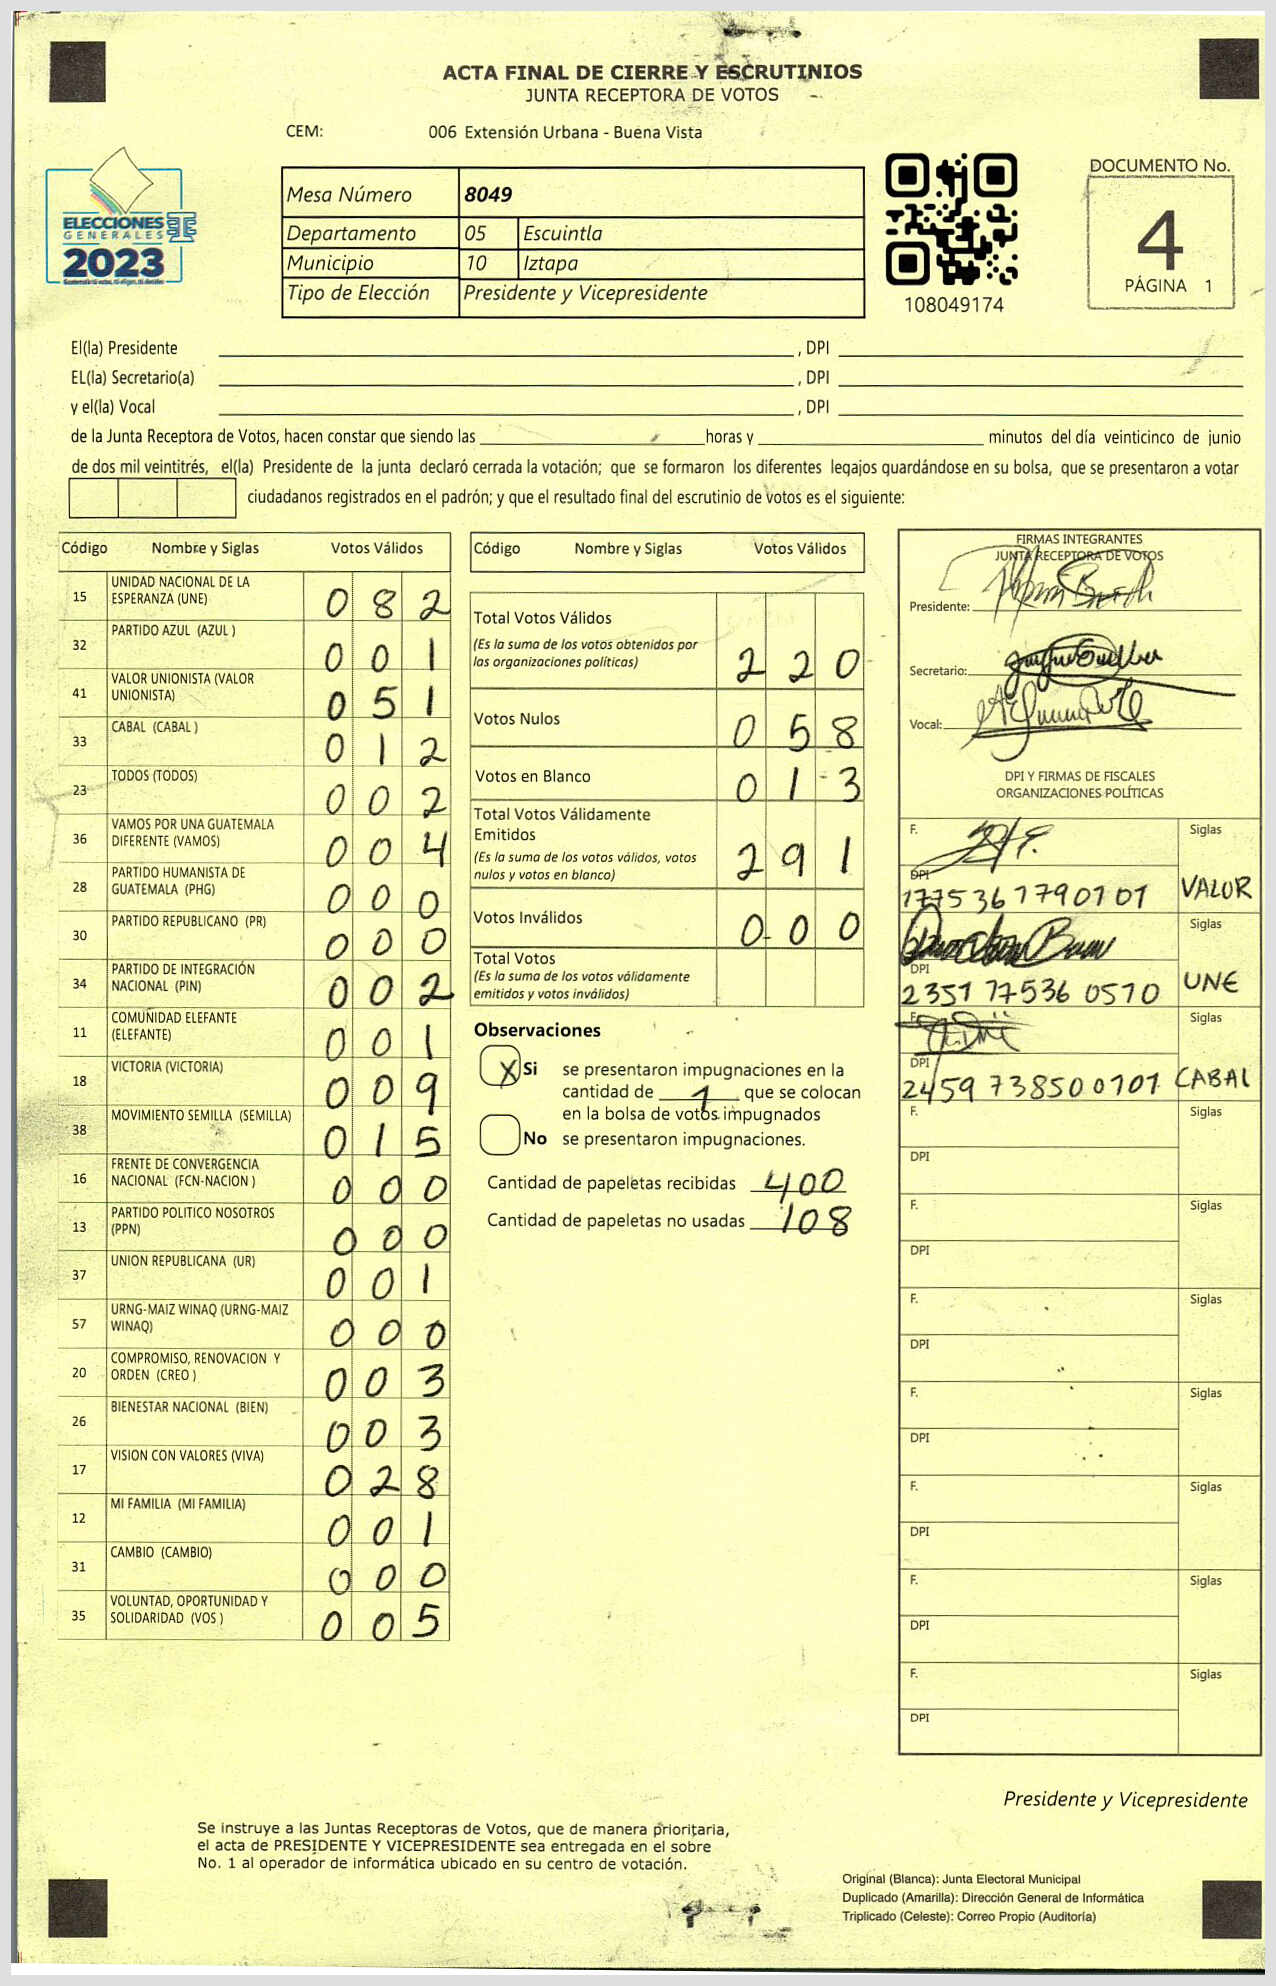 ACTA FINAL DE CIERRE Y ESCRUTINIOS
JUNTA RECEPTORA DE VOTOS
CEM: 006 Extensión Urbana - Buena Vista
ELECCIONES
GENERALES
2023
Mesa Número 8049
Departamento 05 Escuintla
Municipio 10 Iztapa
Tipo de Elección Presidente y Vicepresidente
108049174
DOCUMENTO No.
4
PÁGINA 1
El(la) Presidente , DPI
EL(la) Secretario(a) , DPI
y el(la) Vocal , DPI
de la Junta Receptora de Votos, hacen constar que siendo las horas y minutos del día veinticinco de junio
de dos mil veintitrés, el(la) Presidente de la junta declaró cerrada la votación; que se formaron los diferentes legajos guardándose en su bolsa, que se presentaron a votar
ciudadanos registrados en el padrón; y que el resultado final del escrutinio de votos es el siguiente:
Código Nombre y Siglas Votos Válidos
15 UNIDAD NACIONAL DE LA
ESPERANZA (UNE) 0 8 2
32 PARTIDO AZUL (AZUL ) 0 0 1
41 VALOR UNIONISTA (VALOR
UNIONISTA) 0 5 1
33 CABAL (CABAL ) 0 1 2
23 TODOS (TODOS) 0 0 2
36 VAMOS POR UNA GUATEMALA
DIFERENTE (VAMOS) 0 0 4
28 PARTIDO HUMANISTA DE
GUATEMALA (PHG) 0 0 0
30 PARTIDO REPUBLICANO (PR) 0 0 0
34 PARTIDO DE INTEGRACIÓN
NACIONAL (PIN) 0 0 2
11 COMUNIDAD ELEFANTE
(ELEFANTE) 0 0 1
18 VICTORIA (VICTORIA) 0 0 9
38 MOVIMIENTO SEMILLA (SEMILLA) 0 1 5
16 FRENTE DE CONVERGENCIA
NACIONAL (FCN-NACION ) 0 0 0
13 PARTIDO POLITICO NOSOTROS
(PPN) 0 0 0
37 UNION REPUBLICANA (UR) 0 0 1
57 URNG-MAIZ WINAQ (URNG-MAIZ
WINAQ) 0 0 0
20 COMPROMISO, RENOVACION Y
ORDEN (CREO ) 0 0 3
26 BIENESTAR NACIONAL (BIEN) 0 0 3
17 VISION CON VALORES (VIVA) 0 2 8
12 MI FAMILIA (MI FAMILIA) 0 0 1
31 CAMBIO (CAMBIO) 0 0 0
35 VOLUNTAD, OPORTUNIDAD Y
SOLIDARIDAD (VOS ) 0 0 5
Código Nombre y Siglas Votos Válidos
Total Votos Válidos
(Es la suma de los votos obtenidos por
las organizaciones políticas) 2 2 0
Votos Nulos 0 5 8
Votos en Blanco 0 1 3
Total Votos Válidamente
Emitidos
(Es la suma de los votos válidos, votos
nulos y votos en blanco) 2 9 1
Votos Inválidos 0 0 0
Total Votos
(Es la suma de los votos válidamente
emitidos y votos inválidos)
Observaciones
X Si se presentaron impugnaciones en la
cantidad de 1 que se colocan
en la bolsa de votos impugnados
No se presentaron impugnaciones.
Cantidad de papeletas recibidas 400
Cantidad de papeletas no usadas 108
FIRMAS INTEGRANTES
JUNTA RECEPTORA DE VOTOS
Presidente:
Secretario:
Vocal:
DPI Y FIRMAS DE FISCALES
ORGANIZACIONES POLÍTICAS
F. Siglas
DPI
1775 36 1790101 VALOR
Siglas
DPI
2351 77536 0510 UNE
F. Siglas
DPI
2459 738500101 CABAL
F. Siglas
DPI
F. Siglas
DPI
F. Siglas
DPI
F. Siglas
DPI
F. Siglas
DPI
F. Siglas
DPI
F. Siglas
DPI
Presidente y Vicepresidente
Se instruye a las Juntas Receptoras de Votos, que de manera prioritaria,
el acta de PRESIDENTE Y VICEPRESIDENTE sea entregada en el sobre
No. 1 al operador de informática ubicado en su centro de votación.
Original (Blanca): Junta Electoral Municipal
Duplicado (Amarilla): Dirección General de Informática
Triplicado (Celeste): Correo Propio (Auditoría)